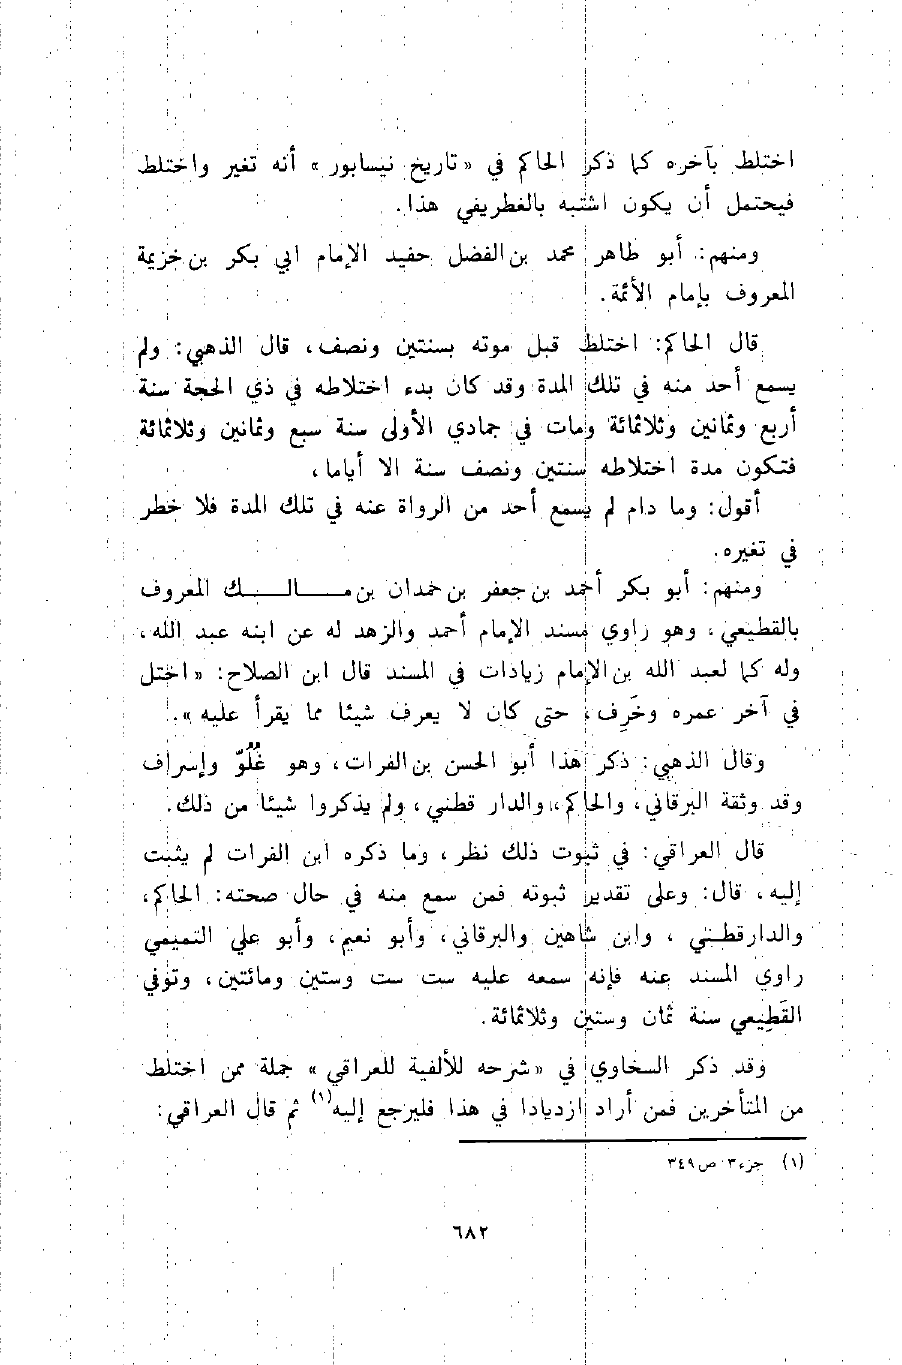 اختلط بآخره كما ذكر الحاكم في « تاريخ نيسابور » أنه تغير واختلط
فيحتمل أن يكون اشتبه بالغطريفي هذا.
ومنهم: أبو طاهر محمد بن الفضل حفيد الإمام ابي بكر بن خزيمة
المعروف بإمام الأئمة.
قال الحاكم: اختلط قبل موته بسنتين ونصف، قال الذهبي: ولم
يسمع أحد منه في تلك المدة وقد كان بدء اختلاطه في ذي الحجة سنة
أربع وثمانين وثلاثمائة ومات في جمادي الأولى سنة سبع وثمانين وثلاثمائة
فتكون مدة اختلاطه سنتين ونصف سنة الا أياما،
أقول: وما دام لم يسمع أحد من الرواة عنه في تلك المدة فلا خطر
في تغيره.
ومنهم: أبو بكر أحمد بن جعفر بن حمدان بن مــالــك المعروف
بالقطيعي، وهو راوي مسند الإمام أحمد والزهد له عن ابنه عبد الله،
وله كما لعبد الله بن الإمام زيادات في المسند قال ابن الصلاح: « اختل
في آخر عمره وخَرِف، حتى كان لا يعرف شيئا مما يقرأ عليه ».
وقال الذهبي: ذكر هذا أبو الحسن بن الفرات، وهو غُلُوّ وإسراف
وقد وثقة البرقاني، والحاكم، والدار قطني، ولم يذكروا شيئا من ذلك.
قال العراقي: في ثبوت ذلك نظر، وما ذكره ابن الفرات لم يثبت
إليه، قال: وعلى تقدير ثبوته فمن سمع منه في حال صحته: الحاكم،
والدارقطني ، وابن شاهين والبرقاني، وأبو نعيم، وأبو علي التميمي
راوي المسند عنه فإنه سمعه عليه ست ست وستين ومائتين، وتوفي
القَطِيعي سنة ثمان وستين وثلاثمائة.
وقد ذكر السخاوي في « شرحه للألفية للعراقي » جملة ممن اختلط
من المتأخرين فمن أراد ازديادا في هذا فليرجع إليه(١) ثم قال العراقي:
(١) جزء٣ ص٣٤٩
٦٨٢